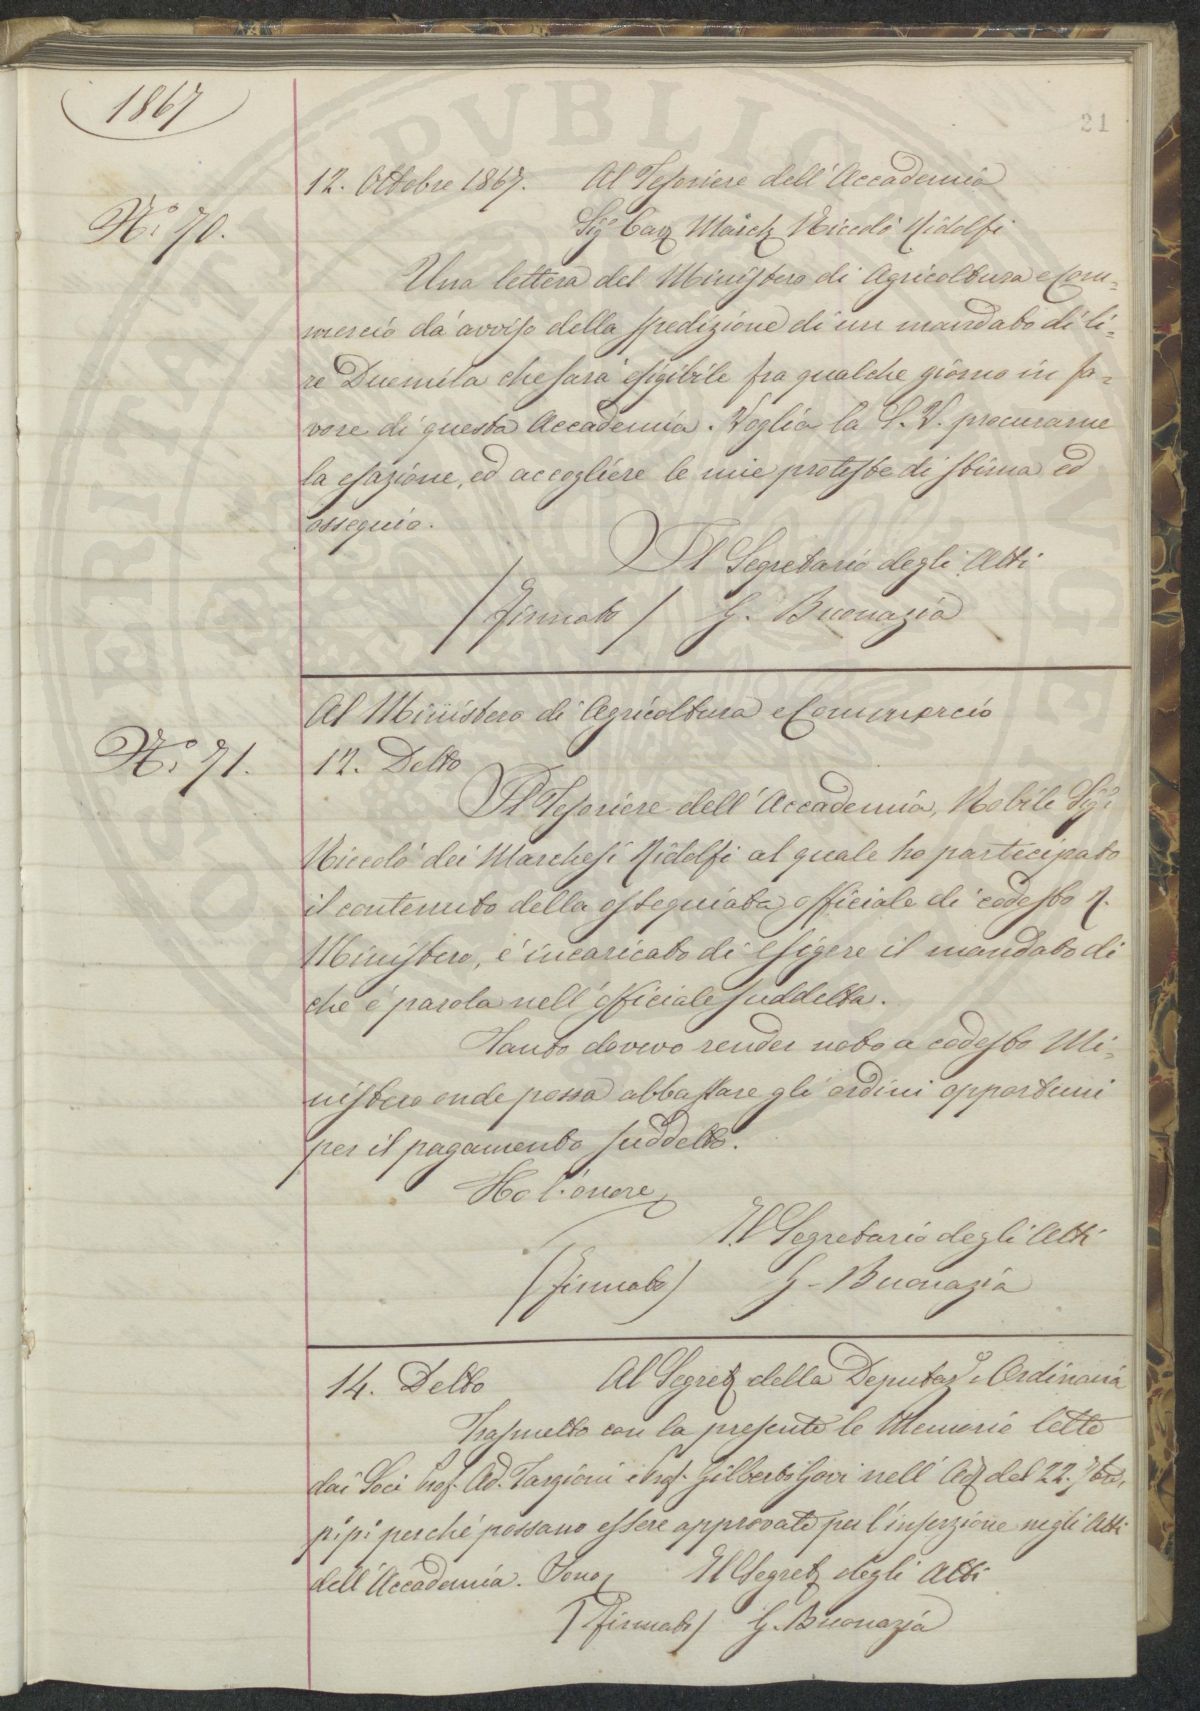 1867
21
12. Ottobre 1867. Al Tesoriere dell'Accademia
N.° 70.
Sig.r Cav. March. Niccolò Ridolfi
Una lettera del Ministero di Agricoltura e Com=
mercio dà avviso della spedizione di un mandato di li=
re Duemila che sarà esigibile fra qualche giorno in fa=
vore di questa Accademia. Voglia la S. V. procurarne
la esazione, ed accogliere le mie proteste di stima ed
ossequio.
Il Segretario degli Atti
/firmato/ G. Buonazia
Al Ministero di Agricoltura e Commercio
N.° 71.
12. Detto
Il Tesoriere dell'Accademia, Nobile Sig.r
Niccolò dei Marchesi Ridolfi al quale ho partecipato
il contenuto della ossequiata officiale di codesto R.
Ministero, è incaricato di esigere il mandato di
che è parola nell'officiale suddetta.
Tanto dovevo render noto a codesto Mi=
nistero onde possa abbassare gli ordini opportuni
per il pagamento suddetto.
Ho l'onore
Il Segretario degli Atti
/firmato/ G. Buonazia
14. Detto Al Segret. della Deputaz.e Ordinaria
Trasmetto con la presente le Memorie lette
dai Soci Prof. Ad. Targioni e Prof. Gilberto Govi nell' Ad. del 22. 7bre.
p.° p.° perché possano essere approvate per l'inserzione negli Atti
dell'Accademia. Sono Il Segret. degli Atti
/firmato/ G. Buonazia